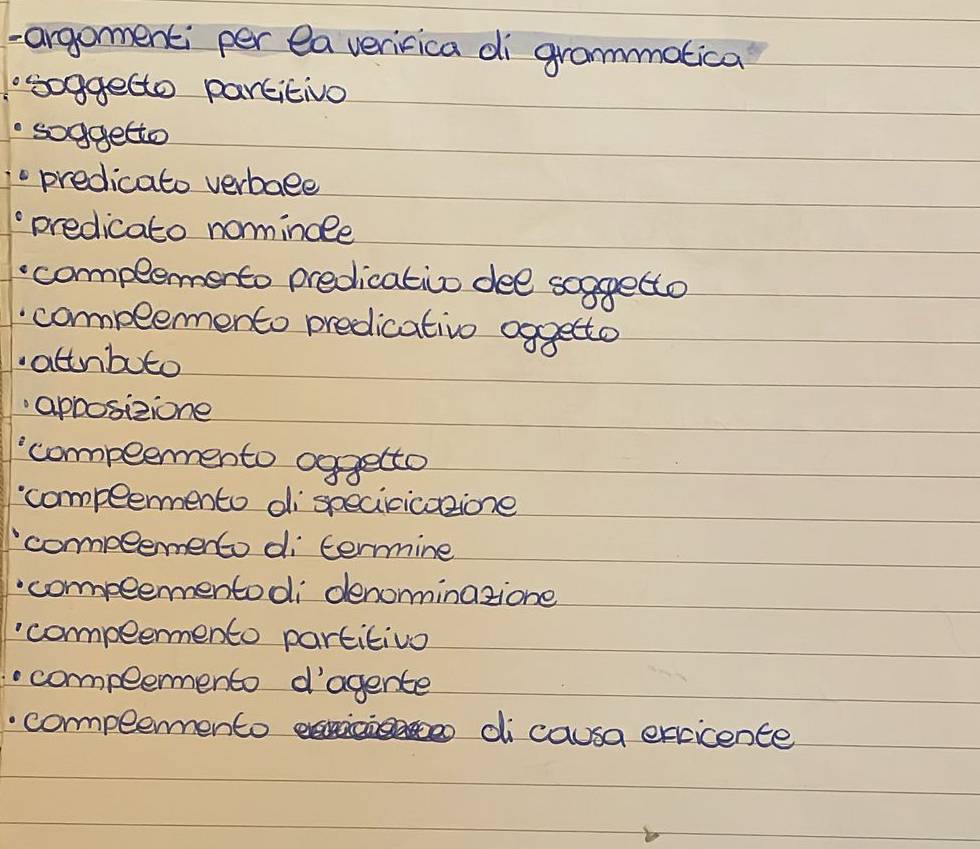 -argomenti per la verifica di grammatica
•soggetto partitivo
•soggetto
•predicato verbale
•predicato nominale
•complemento predicativo del soggetto
•complemento predicativo oggetto
•attributo
•apposizione
•complemento oggetto
•complemento di specificazione
•complemento di termine
•complemento di denominazione
•complemento partitivo
•complemento d'agente
•complemento di causa efficente